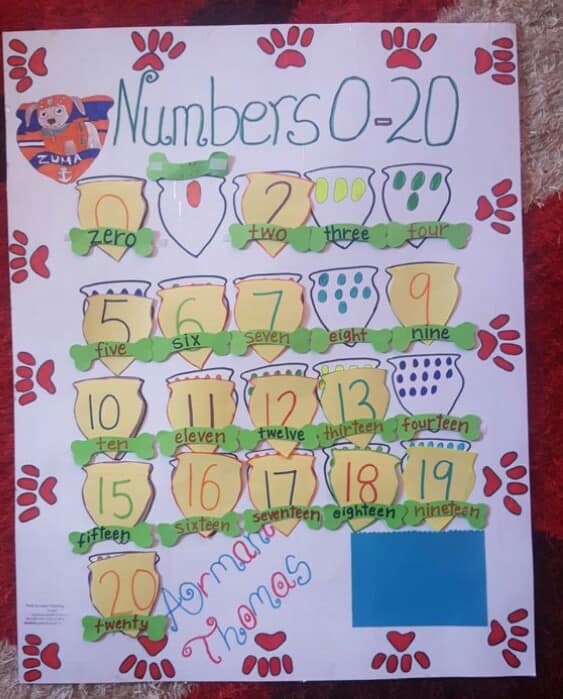 Numbers 0-20
ZUMA
0 2
zero two three four
5 6 7 9
five six seven eight nine
10 11 12 13
ten eleven twelve thirteen fourteen
15 16 17 18 19
fifteen sixteen seventeen eighteen nineteen
20
twenty
Thomas